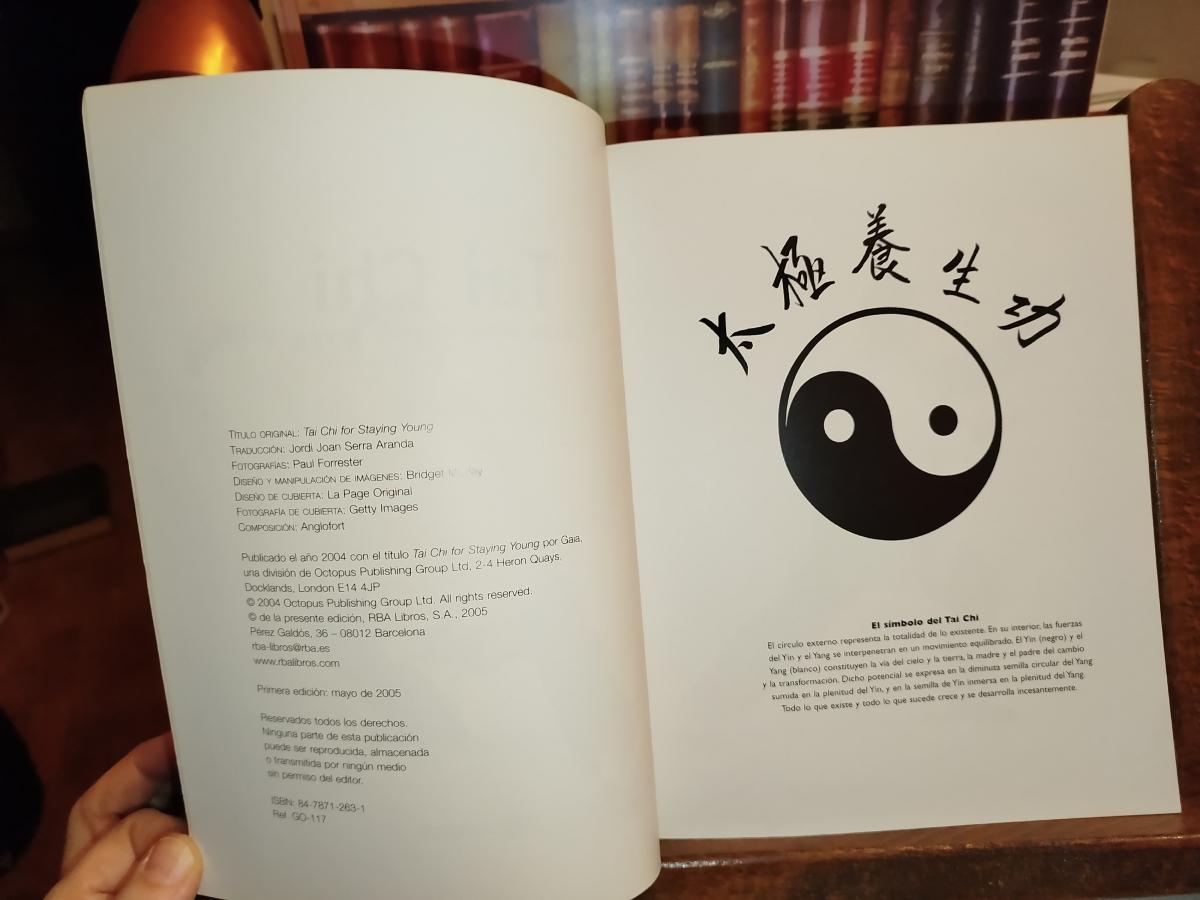 TÍTULO ORIGINAL: Tai Chi for Staying Young
TRADUCCIÓN: Jordi Joan Serra Aranda
FOTOGRAFÍAS: Paul Forrester
DISEÑO Y MANIPULACIÓN DE IMÁGENES: Bridget
DISEÑO DE CUBIERTA: La Page Original
FOTOGRAFÍA DE CUBIERTA: Getty Images
COMPOSICIÓN: Anglofort
Publicado el año 2004 con el título Tai Chi for Staying Young por Gaia,
una división de Octopus Publishing Group Ltd, 2-4 Heron Quays.
Docklands, London E14 4JP
© 2004 Octopus Publishing Group Ltd. All rights reserved.
© de la presente edición, RBA Libros, S.A., 2005
Pérez Galdós, 36 – 08012 Barcelona
rba-libros@rba.es
www.rbalibros.com
Primera edición: mayo de 2005
Reservados todos los derechos.
Ninguna parte de esta publicación
puede ser reproducida, almacenada
o transmitida por ningún medio
sin permiso del editor.
ISBN: 84-7871-263-1
Ref. GO-117
太極養生功
El símbolo del Tai Chi
El círculo externo representa la totalidad de lo existente. En su interior, las fuerzas
del Yin y el Yang se interpenetran en un movimiento equilibrado. El Yin (negro) y el
Yang (blanco) constituyen la vía del cielo y la tierra, la madre y el padre del cambio
y la transformación. Dicho potencial se expresa en la diminuta semilla circular del Yang
sumida en la plenitud del Yin, y en la semilla de Yin inmersa en la plenitud del Yang.
Todo lo que existe y todo lo que sucede crece y se desarrolla incesantemente.